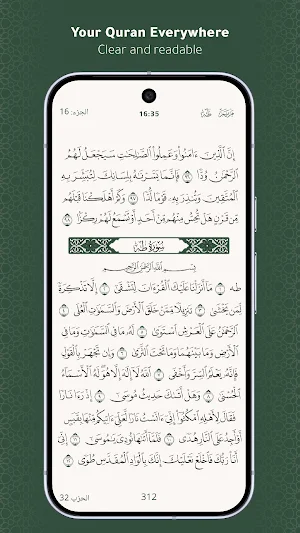 Your Quran Everywhere
Clear and readable
الجزء: 16
16:35
إِنَّ ٱلَّذِينَ ءَامَنُوا۟ وَعَمِلُوا۟ ٱلصَّـٰلِحَـٰتِ سَيَجْعَلُ لَهُمُ
ٱلرَّحْمَـٰنُ وُدًّا ٩٦ فَإِنَّمَا يَسَّرْنَـٰهُ بِلِسَانِكَ لِتُبَشِّرَ بِهِ
ٱلْمُتَّقِينَ وَتُنذِرَ بِهِۦ قَوْمًا لُّدًّا ٩٧ وَكَمْ أَهْلَكْنَا قَبْلَهُم
مِّن قَرْنٍ هَلْ تُحِسُّ مِنْهُم مِّنْ أَحَدٍ أَوْ تَسْمَعُ لَهُمْ رِكْزًۢا ٩٨
سُورَةُ طه
بِسْمِ ٱللَّهِ ٱلرَّحْمَـٰنِ ٱلرَّحِيمِ
طه ١ مَآ أَنزَلْنَا عَلَيْكَ ٱلْقُرْءَانَ لِتَشْقَىٰٓ ٢ إِلَّا تَذْكِرَةً
لِّمَن يَخْشَىٰ ٣ تَنزِيلًا مِّمَّنْ خَلَقَ ٱلْأَرْضَ وَٱلسَّمَـٰوَٰتِ ٱلْعُلَى ٤
ٱلرَّحْمَـٰنُ عَلَى ٱلْعَرْشِ ٱسْتَوَىٰ ٥ لَهُۥ مَا فِى ٱلسَّمَـٰوَٰتِ وَمَا فِى
ٱلْأَرْضِ وَمَا بَيْنَهُمَا وَمَا تَحْتَ ٱلثَّرَىٰ ٦ وَإِن تَجْهَرْ بِٱلْقَوْلِ
فَإِنَّهُۥ يَعْلَمُ ٱلسِّرَّ وَأَخْفَى ٧ ٱللَّهُ لَآ إِلَـٰهَ إِلَّا هُوَ لَهُ ٱلْأَسْمَآءُ
ٱلْحُسْنَىٰ ٨ وَهَلْ أَتَىٰكَ حَدِيثُ مُوسَىٰٓ ٩ إِذْ رَءَا نَارًا
فَقَالَ لِأَهْلِهِ ٱمْكُثُوٓا۟ إِنِّىٓ ءَانَسْتُ نَارًا لَّعَلِّىٓ ءَاتِيكُم مِّنْهَا بِقَبَسٍ
أَوْ أَجِدُ عَلَى ٱلنَّارِ هُدًى ١٠ فَلَمَّآ أَتَىٰهَا نُودِىَ يَـٰمُوسَىٰٓ ١١ إِنِّىٓ
أَنَا۠ رَبُّكَ فَٱخْلَعْ نَعْلَيْكَ إِنَّكَ بِٱلْوَادِ ٱلْمُقَدَّسِ طُوًى ١٢
الحزب 32
312